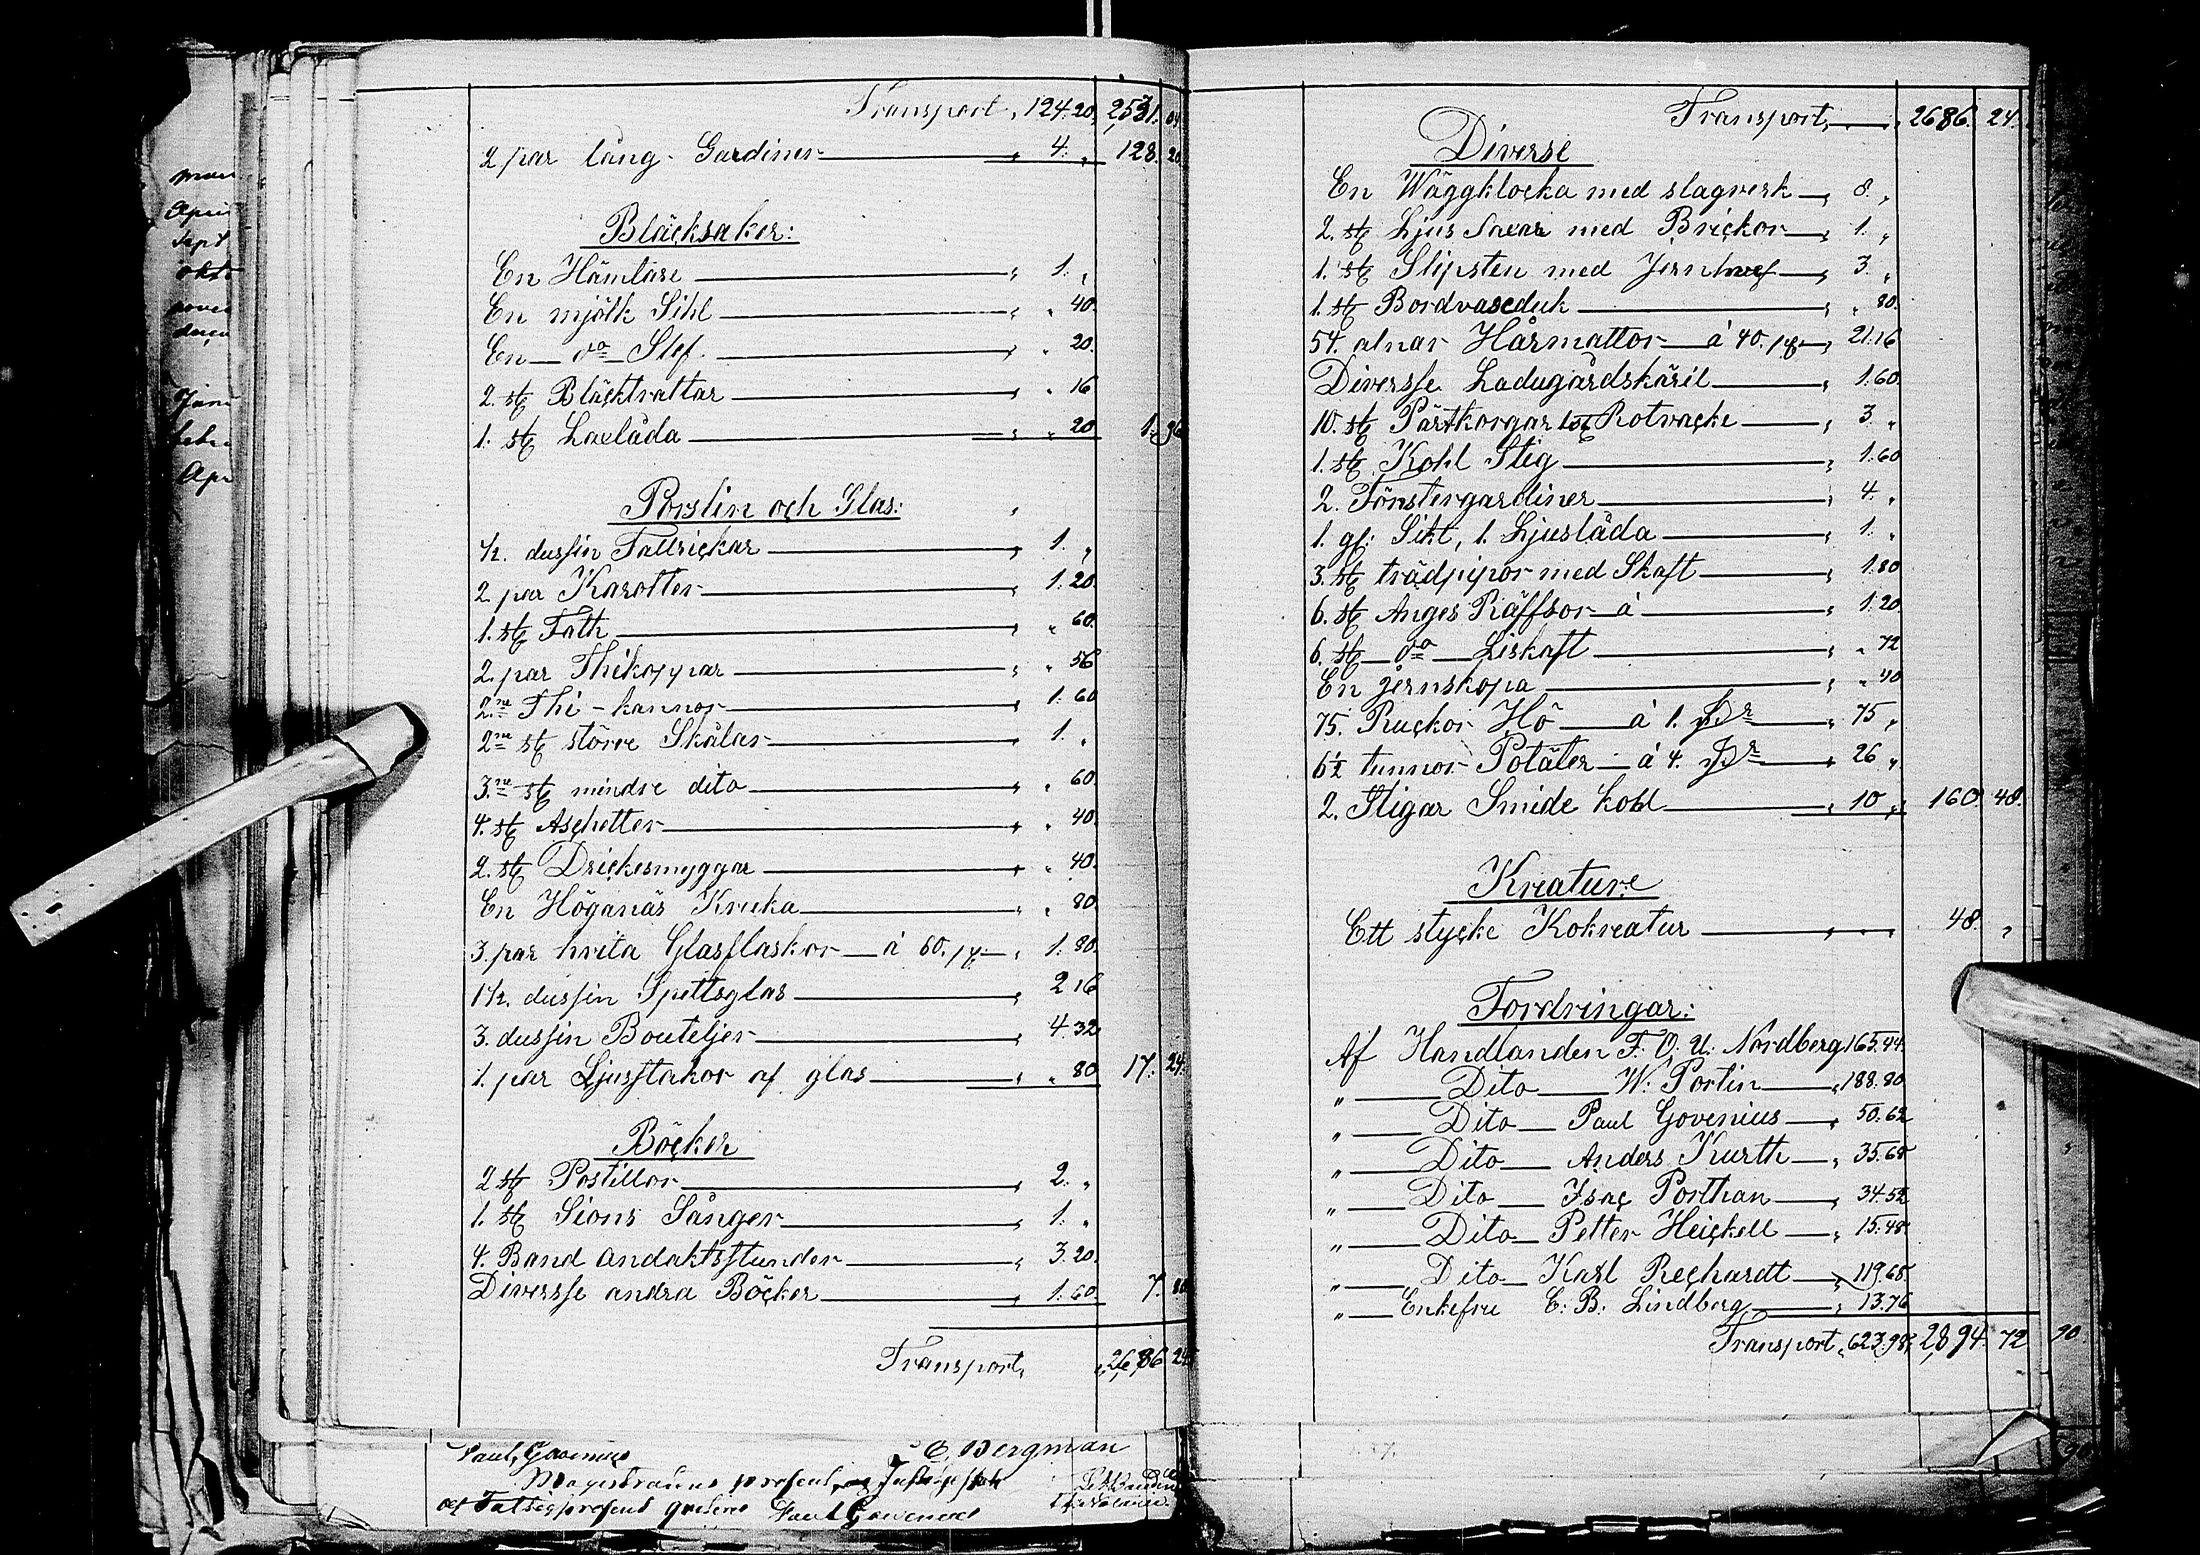 Transport „ 124.20. 2,531. 04
2 par lång- Gardiner „ 4. „ 128. 20
Bläcksaker:
En Hämtare „ 1. „
En mjölk Sihl „ „ 40.
En d:o Slef. „ „ 20.
2. st Bläcktrattar „ „ 16
1. st Laxlåda „ „ 20 1. 96
Porslin och Glas:
1/2. dussin Tallrickar „ 1. „
2 par Karotter „ 1. 20.
1. st Fath „ „ 60.
2. par Thékoppar „ „ 56
2:ne Thé-kannor „ 1. 60
2:ne st större Skålar „ 1. „
3:ne st mindre dito „ „ 60.
4. st Aschetter „ „ 40.
2. st Drickesmuggar „ „ 40.
En Höganäs Kruka „ „ 80.
3. par hvita Glasflaskor á 60. p „ 1. 80.
1 1/2. dussin Spettsglas „ 2 16
3. dussin Bouteljer „ 4. 32
1. par Ljusstakor af glas „ „ 80 17. 24.
Böcker
2 st Postillor „ 2. „
1. st Sions Sånger „ 1. „
4. Band andaktsstunder „ 3. 20.
Diversse andra Böcker „ 1. 60. 7. 80
Transport, „ 2,686 24
Paul Govenius E. Bergman
Paul Govenius
Transport, „ 2686. 24.
Diverse
En Wäggklocka med slagverk „ 8. „
2. st Ljus Saxar med Brickor „ 1. „
1. st Slipsten med Jern „ 3. „
1. st Bordvaxduk „ „ 80.
54. alnar Hårmattor á 40. p „ 21.16
Diversse Ladugårdskäril „ 1.60.
10. st Pärtkorgar 1 st Rotvacke „ 3 „
1. st Kohl Stig „ 1.60
2. Fönstergardiner „ 4. „
1. gl: Sihl, 1. Ljuslåda „ 1. „
3. st trädpipor med Skaft „ 1.80
6. st Anges Räffsor á „ 1.20
6. st d:o Liskaft „ „ 72
En jernskopa „ „ 40
75. Ruckor Hö á 1. „ 75 „
6 1/2 tunnor Potäter á 4. „ 26 „
2. Stigar Smide kohl „ 10 „ 160. 48.
Kreature
Ett stycke Kokreatur „ „ „ 48. „
Fordringar:
Af Handlanden F. O. U. Nordberg 165.44.
„ Dito W. Portin „ 188.80
„ Dito Paul Govenius „ 50.62
„ Dito Anders Kurth „ 35.68
„ Dito Isac Porthan „ 34.52
„ Dito Petter Heickell „ 15.48
„ Dito Karl Reçhardt „ 119.68
„ Enkefru C. B. Lindberg „ 13.76
Transport „ 623.98. 2,894. 72